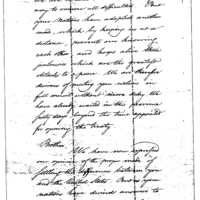 way to remove all difficulties. That
your nations have adopted another
mode, which by keeping us at a
distance, prevents our knowing
each other and keeps alive those
jealousies which are the greatest
obstacles to a peace. We are therefore
desirous of meeting your nations in
full council without more delay. We
have already waited in this province
sixty days beyond the time appointed
for opening the treaty.
Brothers,
We have now expressed
our opinion of the proper mode of
settling the differences between you
and the United States. But as your
nations have desired answers to